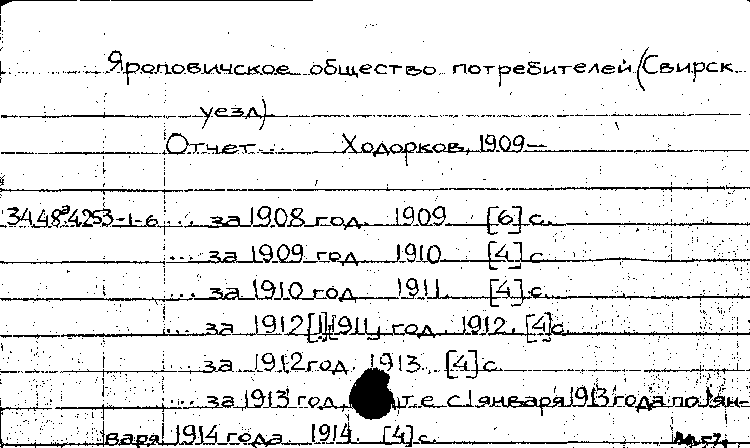 Яроповичское общество потребителей (Свирск.
уезд).
Отчет... Ходорков, 1909—
34.48ª4253-1-6 ... за 1908 год. 1909. [6] с.
... за 1909 год. 1910. [4] с.
... за 1910 год. 1911. [4] с.
... за 1912 [!] [1911] год. 1912. [4] с.
... за 1912 год. 1913. [4] с.
... за 1913 год, т.е. с 1 января 1913 года по 1 ян-
варя 1914 года. 1914. [4] с.